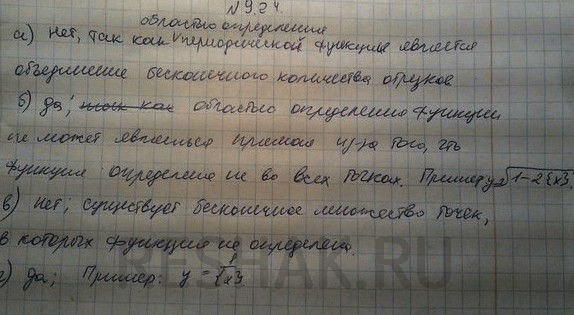 N 9.24.
областью определения
а) Нет, так как периодической функции является
объединение бесконечного количества отрезков
б) да; так как областью определения функции
не может являться прямая из-за того, что
функция определена не во всех точках. Пример y=√1-2{x}.
в) нет; существует бесконечное множество точек,
в которых функция не определена.
г) да; Пример: y = 1/{x}
RESHAK.RU